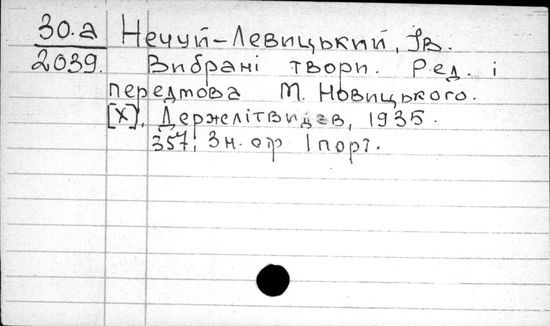 30.а Нечуй-Левицький, Ів.
2039. Вибрані твори. Ред. і
передмова М. Новицького.
[Х], Держлітвидав, 1935.
357, 3 н. стр 1 порт.